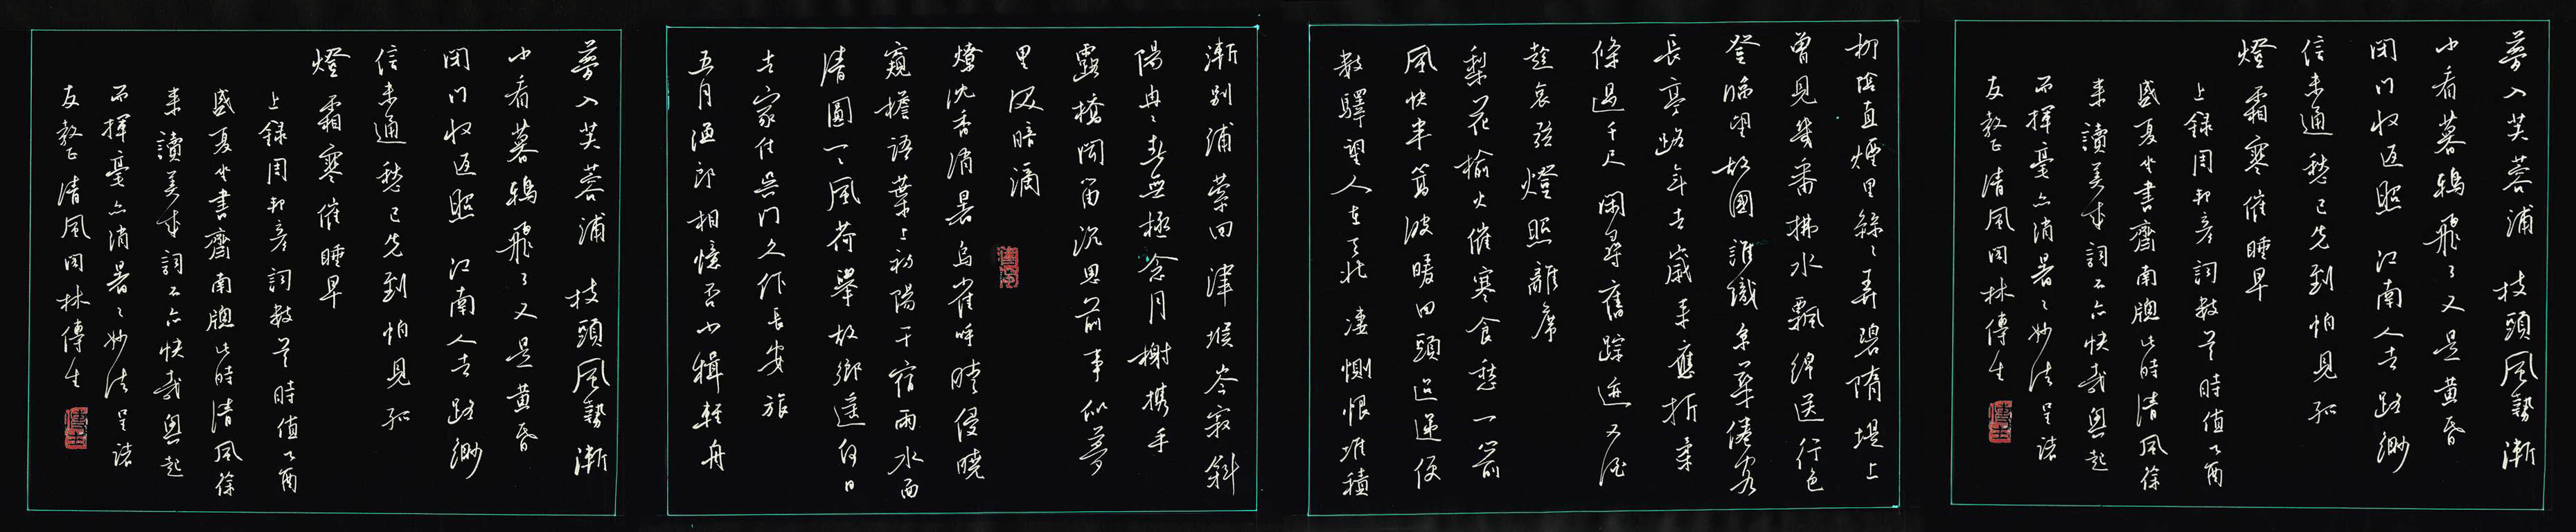 夢入芙蓉浦 枝頭風勢漸
小看暮鴉飛了又是黃昏
閉門收返照 江南人去路緲
信未通愁已先到怕見孤
燈霜寒催睡早
上錄周邦彥詞數首時值乙酉
盛夏坐書齋南牕此時清風徐
來讀美成詞不亦快哉興起
而揮毫亦消暑之妙法呈諸
友教正清風同林傳生
傳生
柳陰直煙里絲々弄碧隋堤上
曾見幾番拂水飄綿送行色
登臨望故國誰識京華倦客
長亭路年去歲來應折柔
條過千尺 閑尋舊踪迹又酒
趁哀弦燈照離席
梨花榆火催寒食愁一箭
風快半篙波暖回頭迢遞便
數驛望人在天北 淒惻恨堆積
漸別浦縈回津堠岑寂斜
陽冉々春無極念月榭携手
露橋聞笛沉思前事似夢
里淚暗滴
燎沈香消暑鳥雀呼晴侵曉
窺檐語葉上初陽干宿雨水面
清圓一々風荷舉故鄉遙何日
去家住吳門久作長安旅
五月漁郎相憶否小楫輕舟
夢入芙蓉浦 枝頭風勢漸
小看暮鴉飛了又是黃昏
閉門收返照 江南人去路緲
信未通愁已先到怕見孤
燈霜寒催睡早
上錄周邦彥詞數首時值乙酉
盛夏坐書齋南牕此時清風徐
來讀美成詞不亦快哉興起
而揮毫亦消暑之妙法呈諸
友教正清風同林傳生
傳生